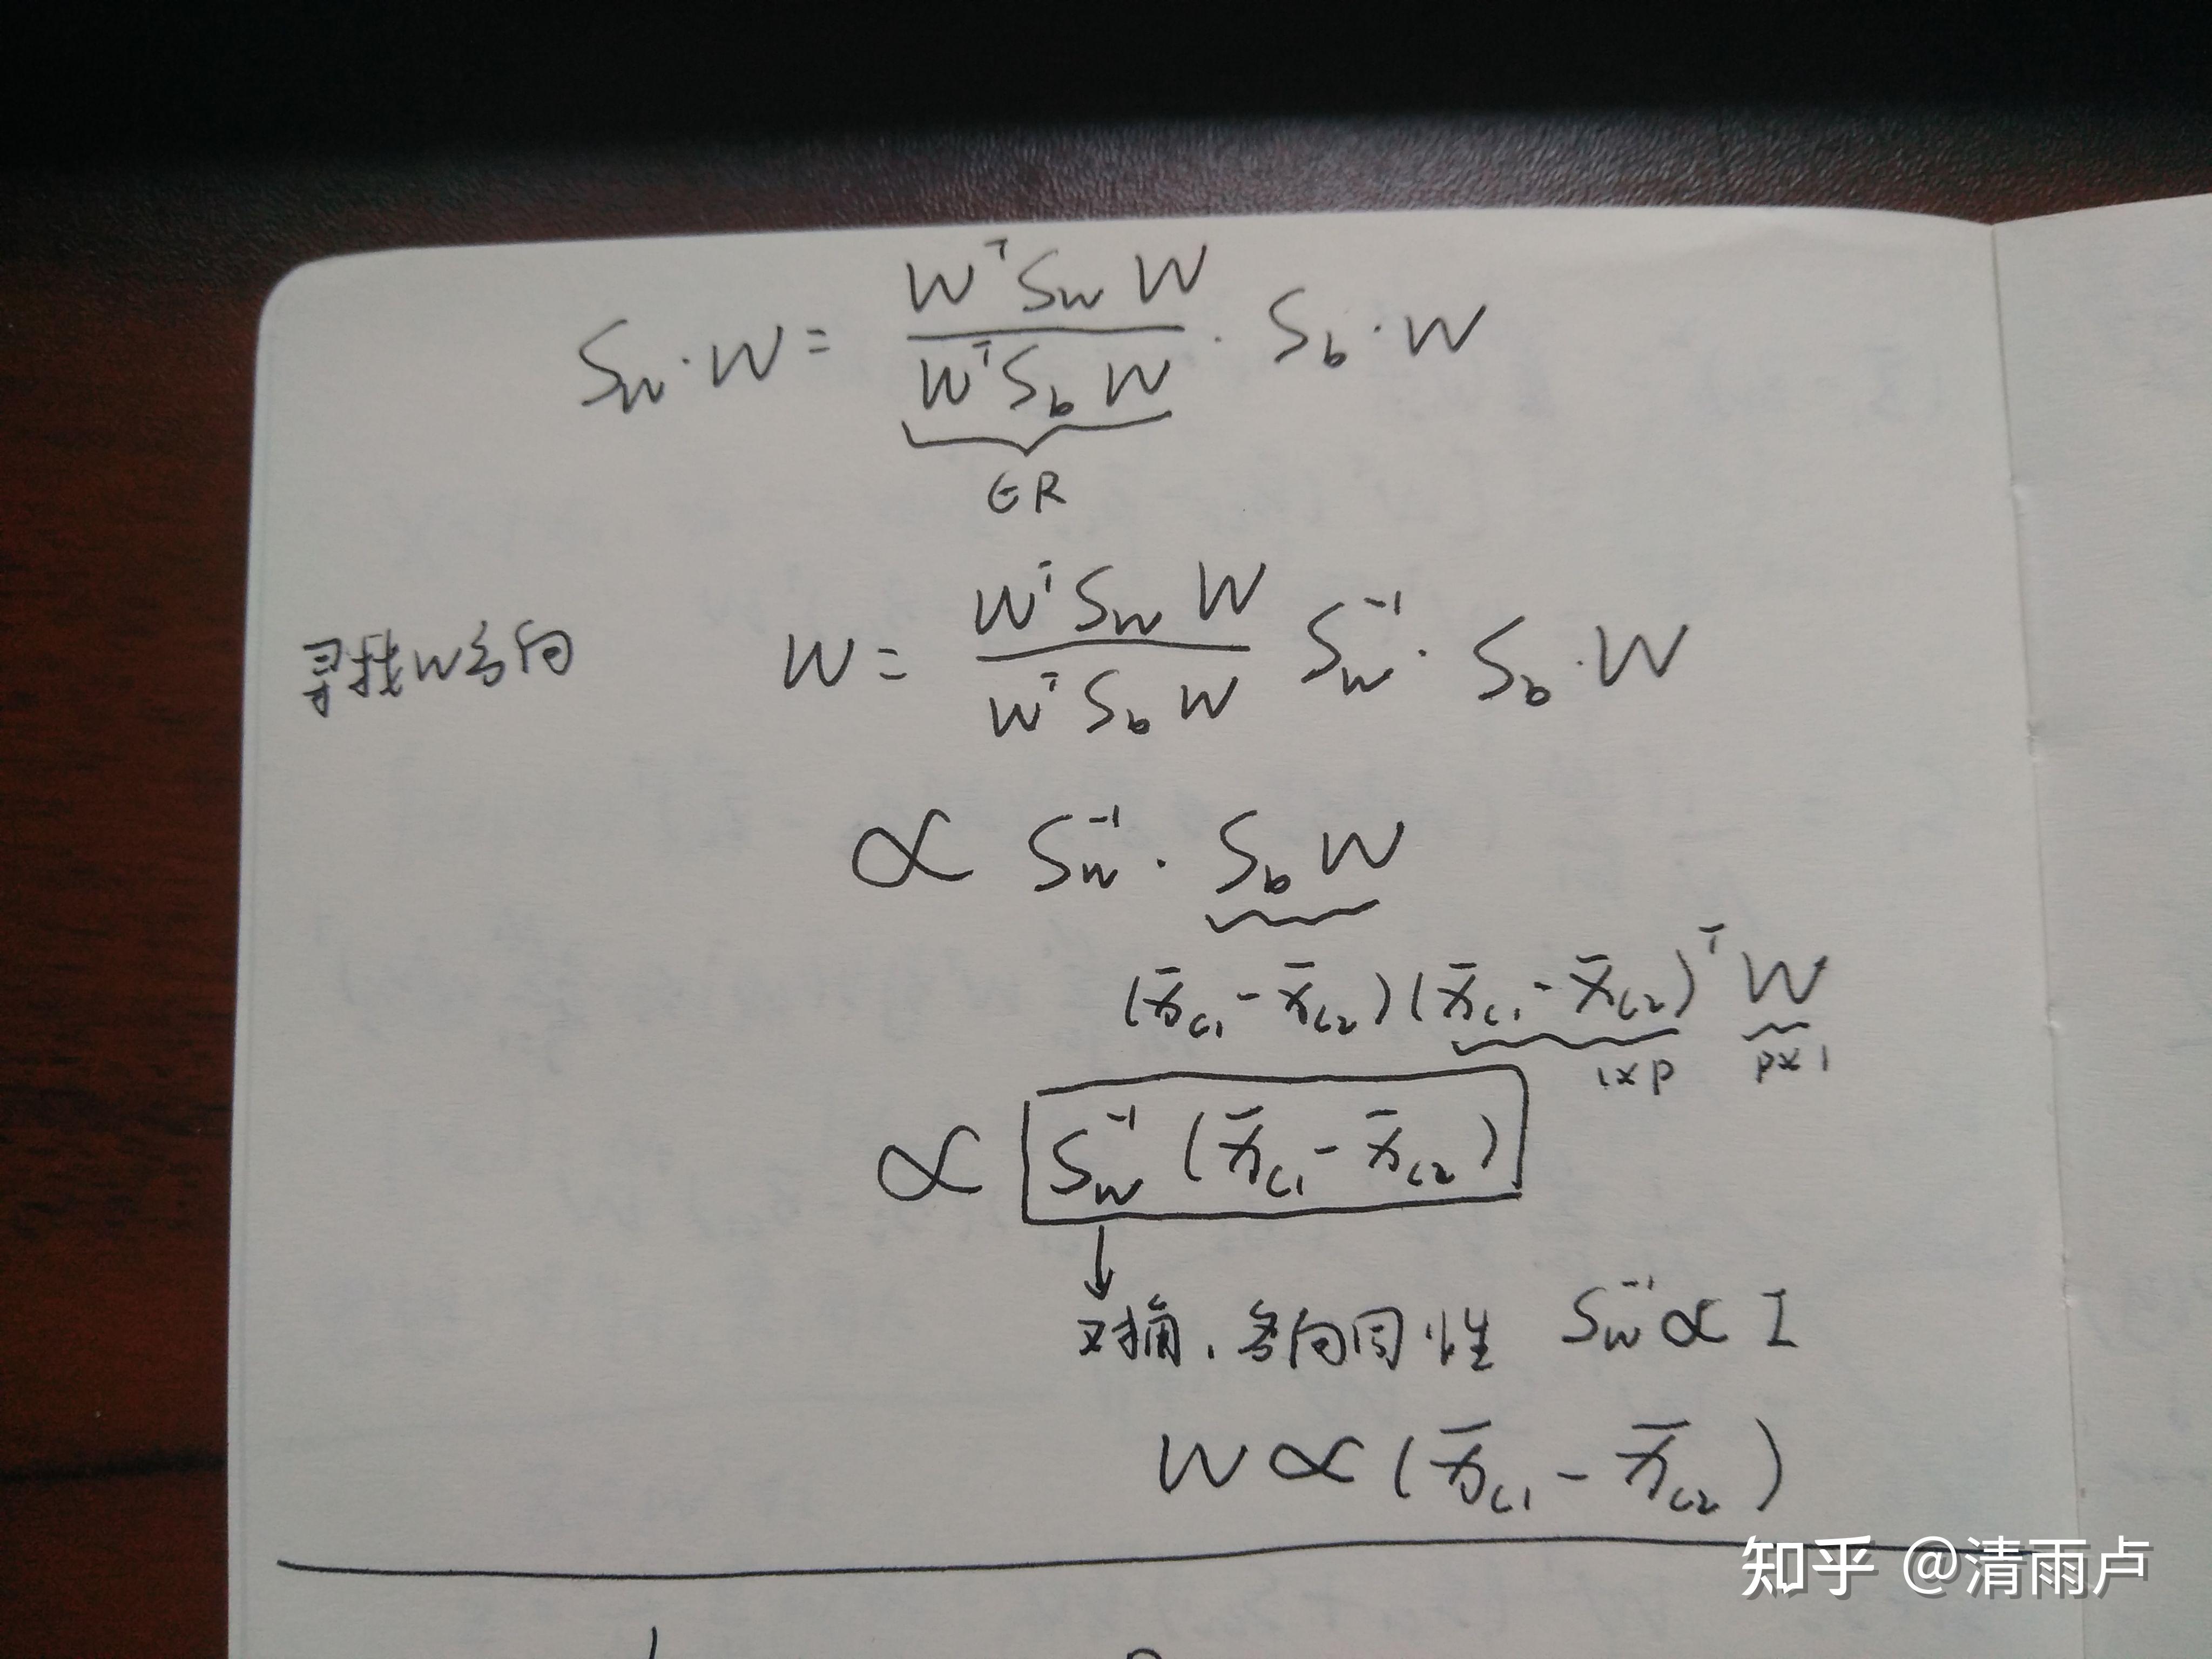 S_w · W = \frac{W^T S_w W}{W^T S_b W} · S_b · W
∈ R
寻找W方向 W = \frac{W^T S_w W}{W^T S_b W} S_w^{-1} · S_b · W
∝ S_w^{-1} · S_b W
(x̄_{c1} - x̄_{c2})(x̄_{c1} - x̄_{c2})^T W
1×p p×1
∝ S_w^{-1} (x̄_{c1} - x̄_{c2})
↓
对角, 各向同性 S_w^{-1} ∝ I
W ∝ (x̄_{c1} - x̄_{c2})
知乎 @清雨卢